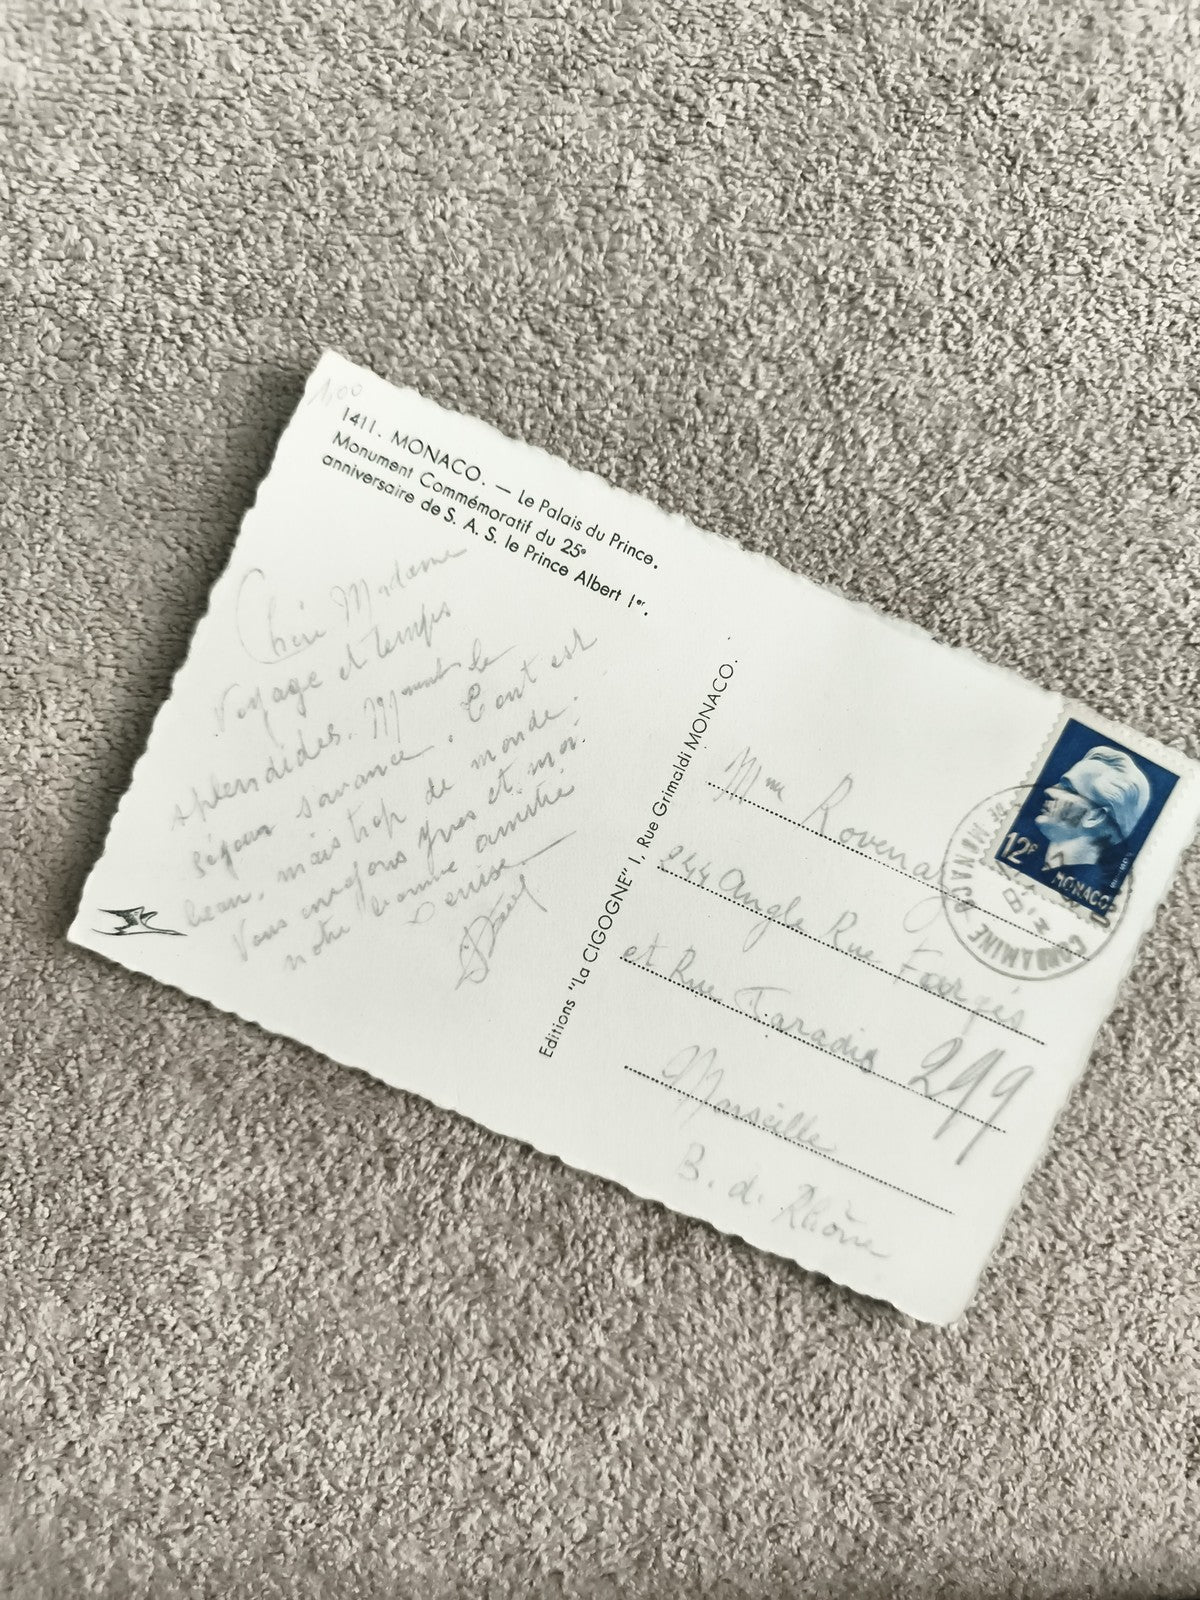 1,00
1411. MONACO. — Le Palais du Prince.
Monument Commémoratif du 25e
anniversaire de S. A. S. le Prince Albert Ier.
Madame
Voyage et temps
splendides. le
séjour s'avance. Tout est
beau, mais trop de monde.
Vous Yves et moi
notre bonne amitié
Denise
Editions "La CIGOGNE" 1, Rue Grimaldi MONACO.
12F
MONACO
CONDAMINE
Mme
244 Angle Rue Fargès
et Rue Paradis 299
Marseille
B. d. Rhône